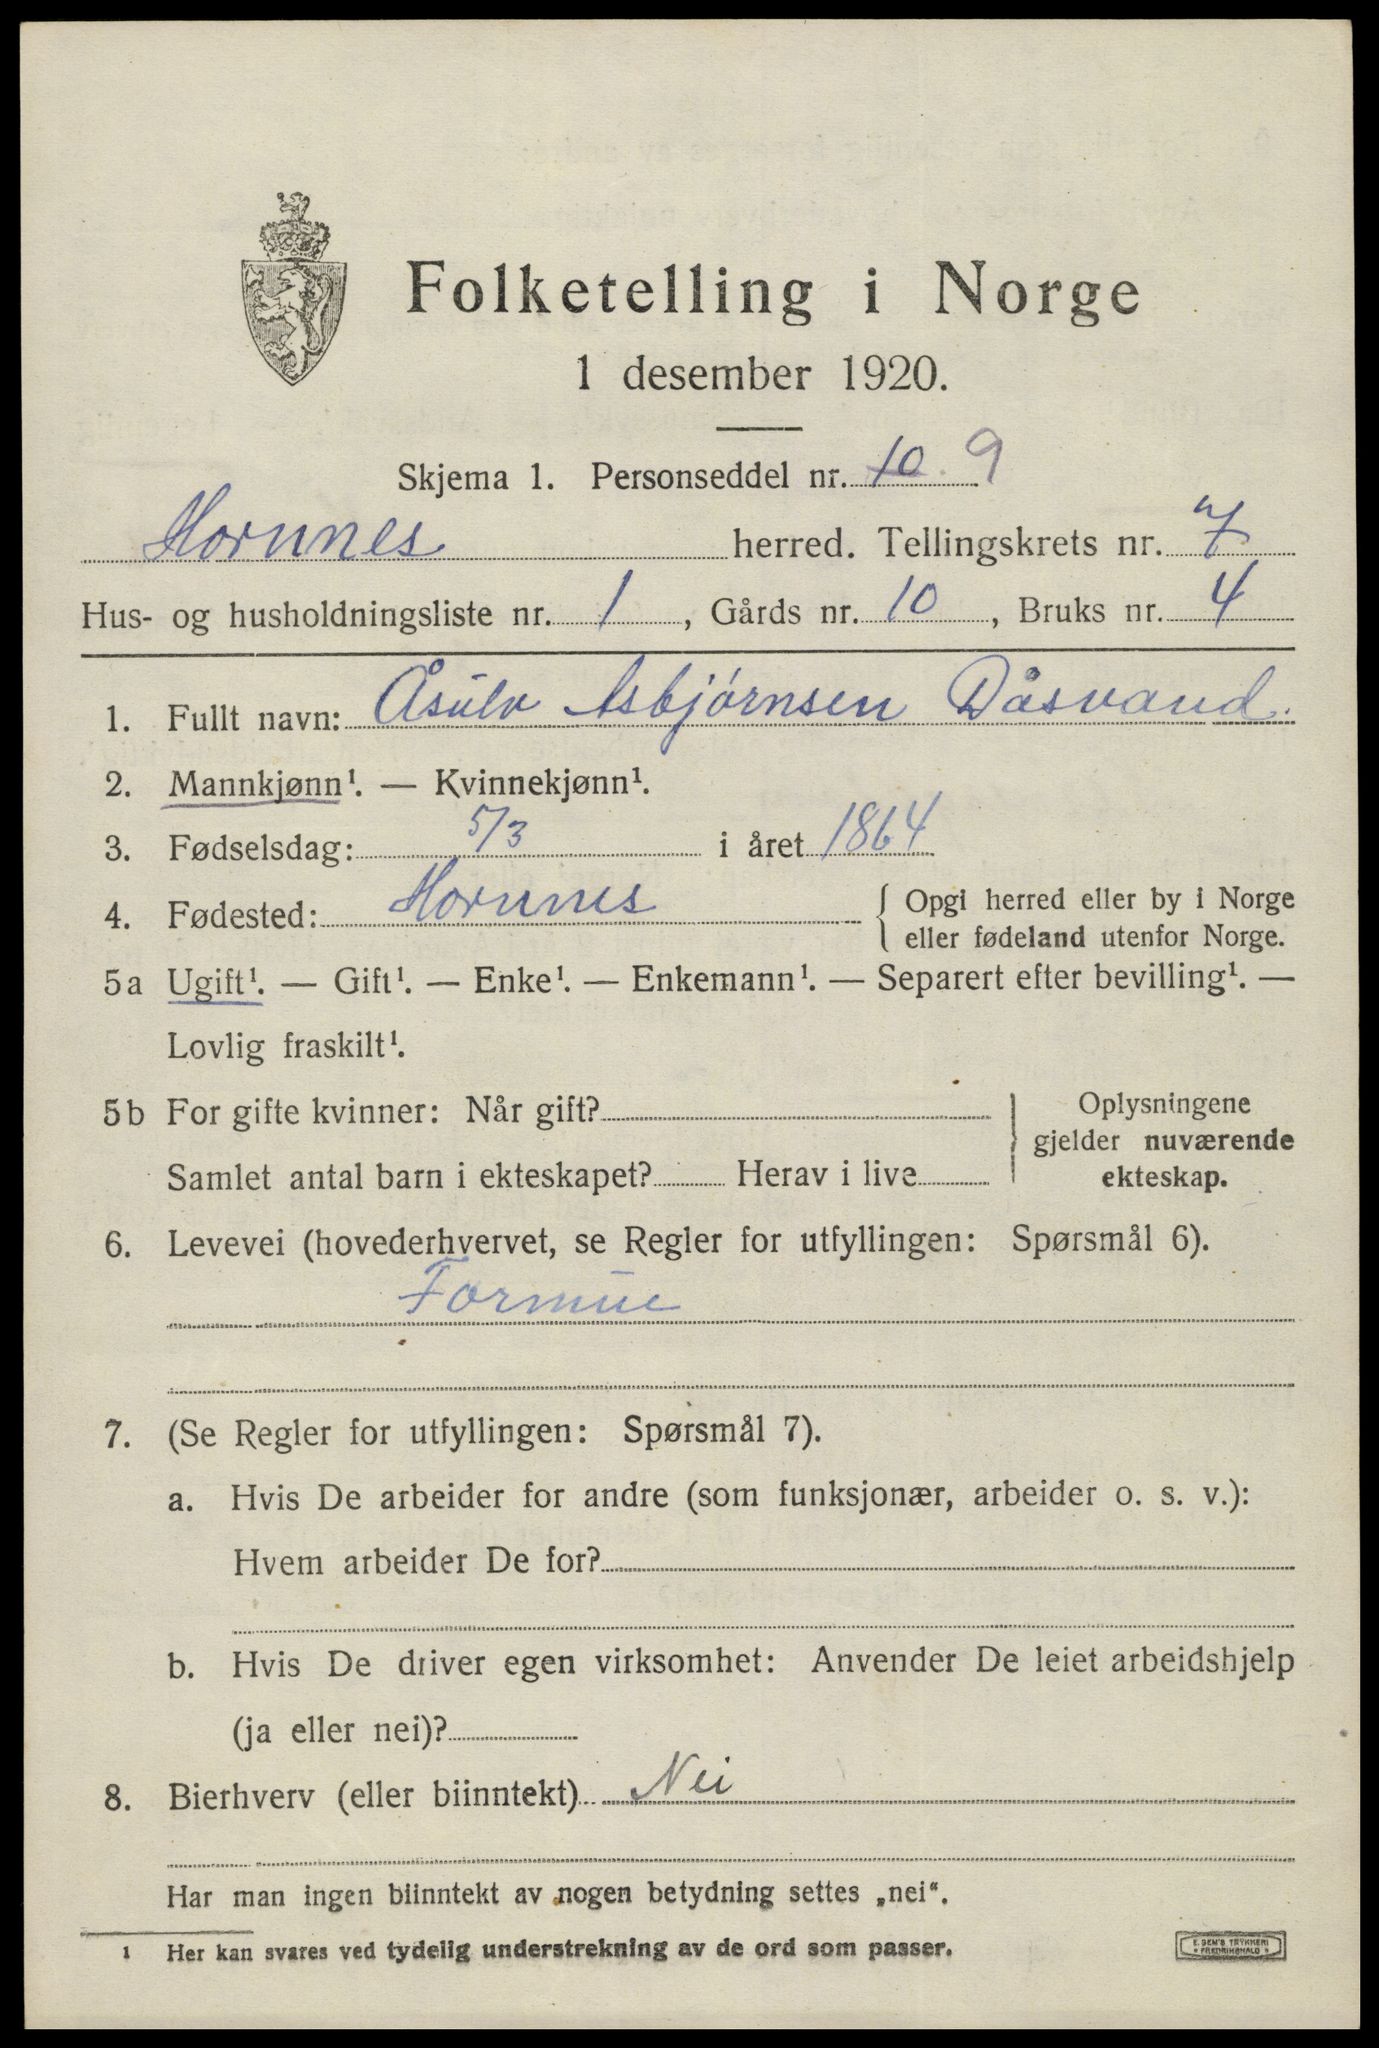 Folketelling i Norge
1 desember 1920.
Skjema 1. Personseddel nr. 10 9
Hornnes herred. Tellingskrets nr. 7
Hus- og husholdningsliste nr. 1, Gårds nr. 10, Bruks nr. 4
1. Fullt navn: Åsulv Asbjørnsen Dåsvand.
2. Mannkjønn¹. — Kvinnekjønn¹.
3. Fødselsdag: 5/3 i året 1864
4. Fødested: Hornnes { Opgi herred eller by i Norge
eller fødeland utenfor Norge.
5a Ugift¹. — Gift¹. — Enke¹. — Enkemann¹. — Separert efter bevilling¹. —
Lovlig fraskilt¹.
5b For gifte kvinner: Når gift?
Samlet antal barn i ekteskapet? Herav i live
Oplysningene
gjelder nuværende
ekteskap.
6. Levevei (hovederhvervet, se Regler for utfyllingen: Spørsmål 6).
Formue
7. (Se Regler for utfyllingen: Spørsmål 7).
a. Hvis De arbeider for andre (som funksjonær, arbeider o. s. v.):
Hvem arbeider De for?
b. Hvis De driver egen virksomhet: Anvender De leiet arbeidshjelp
(ja eller nei)?
8. Bierhverv (eller biinntekt) Nei
Har man ingen biinntekt av nogen betydning settes „nei“.
1 Her kan svares ved tydelig understrekning av de ord som passer.
E. SEM'S TRYKKERI
FREDRIKSHALD